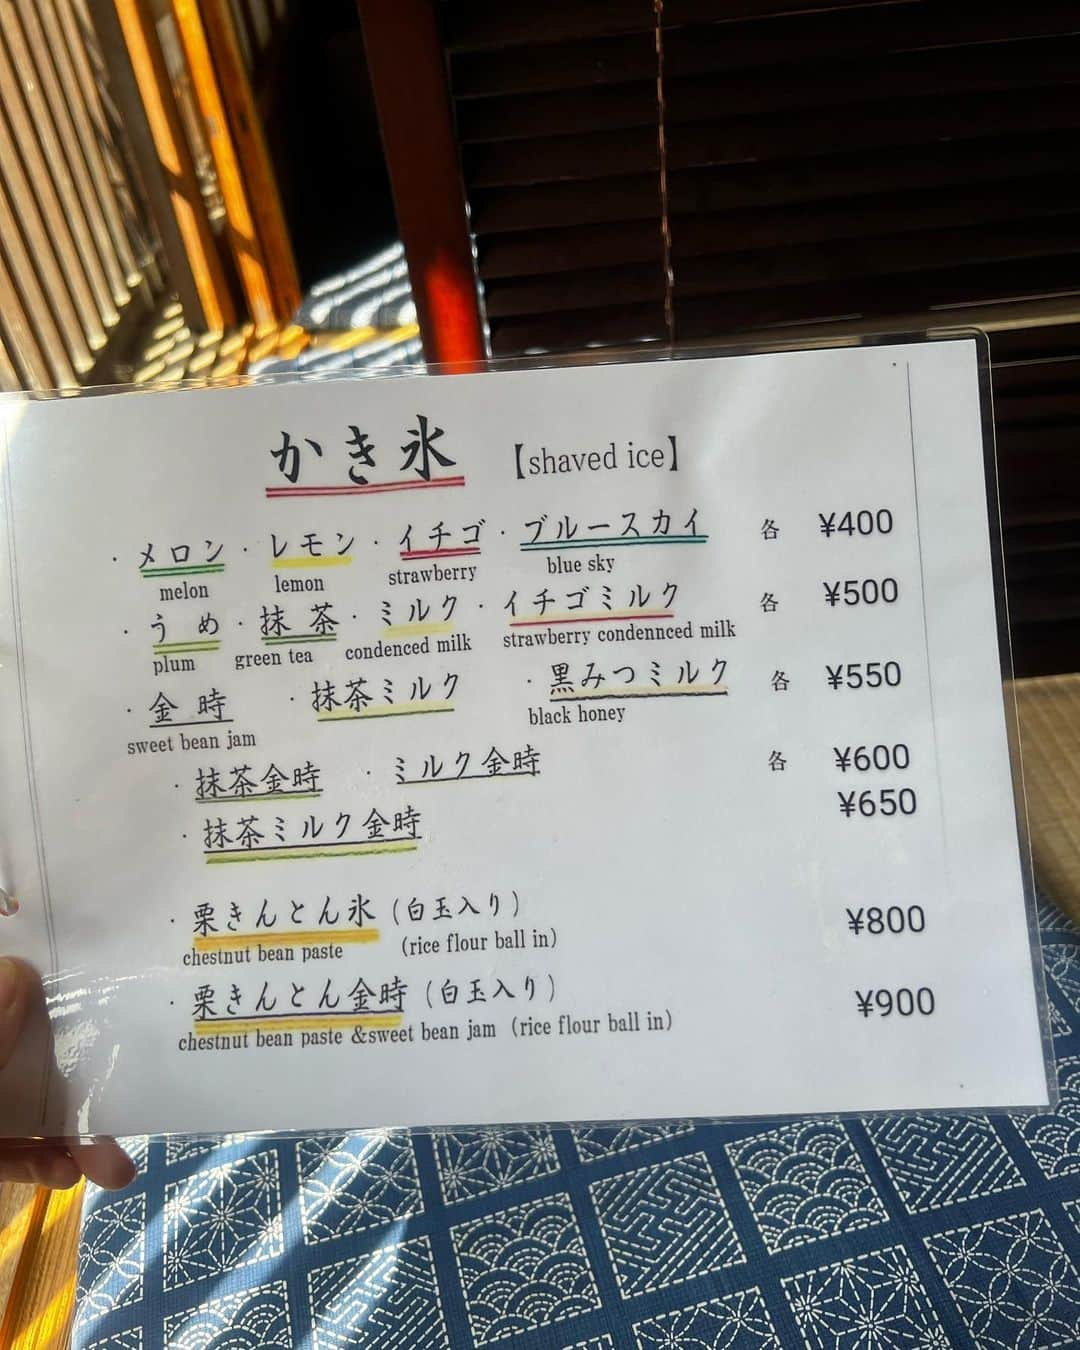 かき氷 【shaved ice】
・メロン・レモン・イチゴ・ブルースカイ 各 ¥400
melon lemon strawberry blue sky
・うめ・抹茶・ミルク・イチゴミルク 各 ¥500
plum green tea condenced milk strawberry condennced milk
・金時 ・抹茶ミルク ・黒みつミルク 各 ¥550
sweet bean jam black honey
・抹茶金時 ・ミルク金時 各 ¥600
・抹茶ミルク金時 ¥650
・栗きんとん氷(白玉入り) ¥800
chestnut bean paste (rice flour ball in)
・栗きんとん金時(白玉入り) ¥900
chestnut bean paste &sweet bean jam (rice flour ball in)